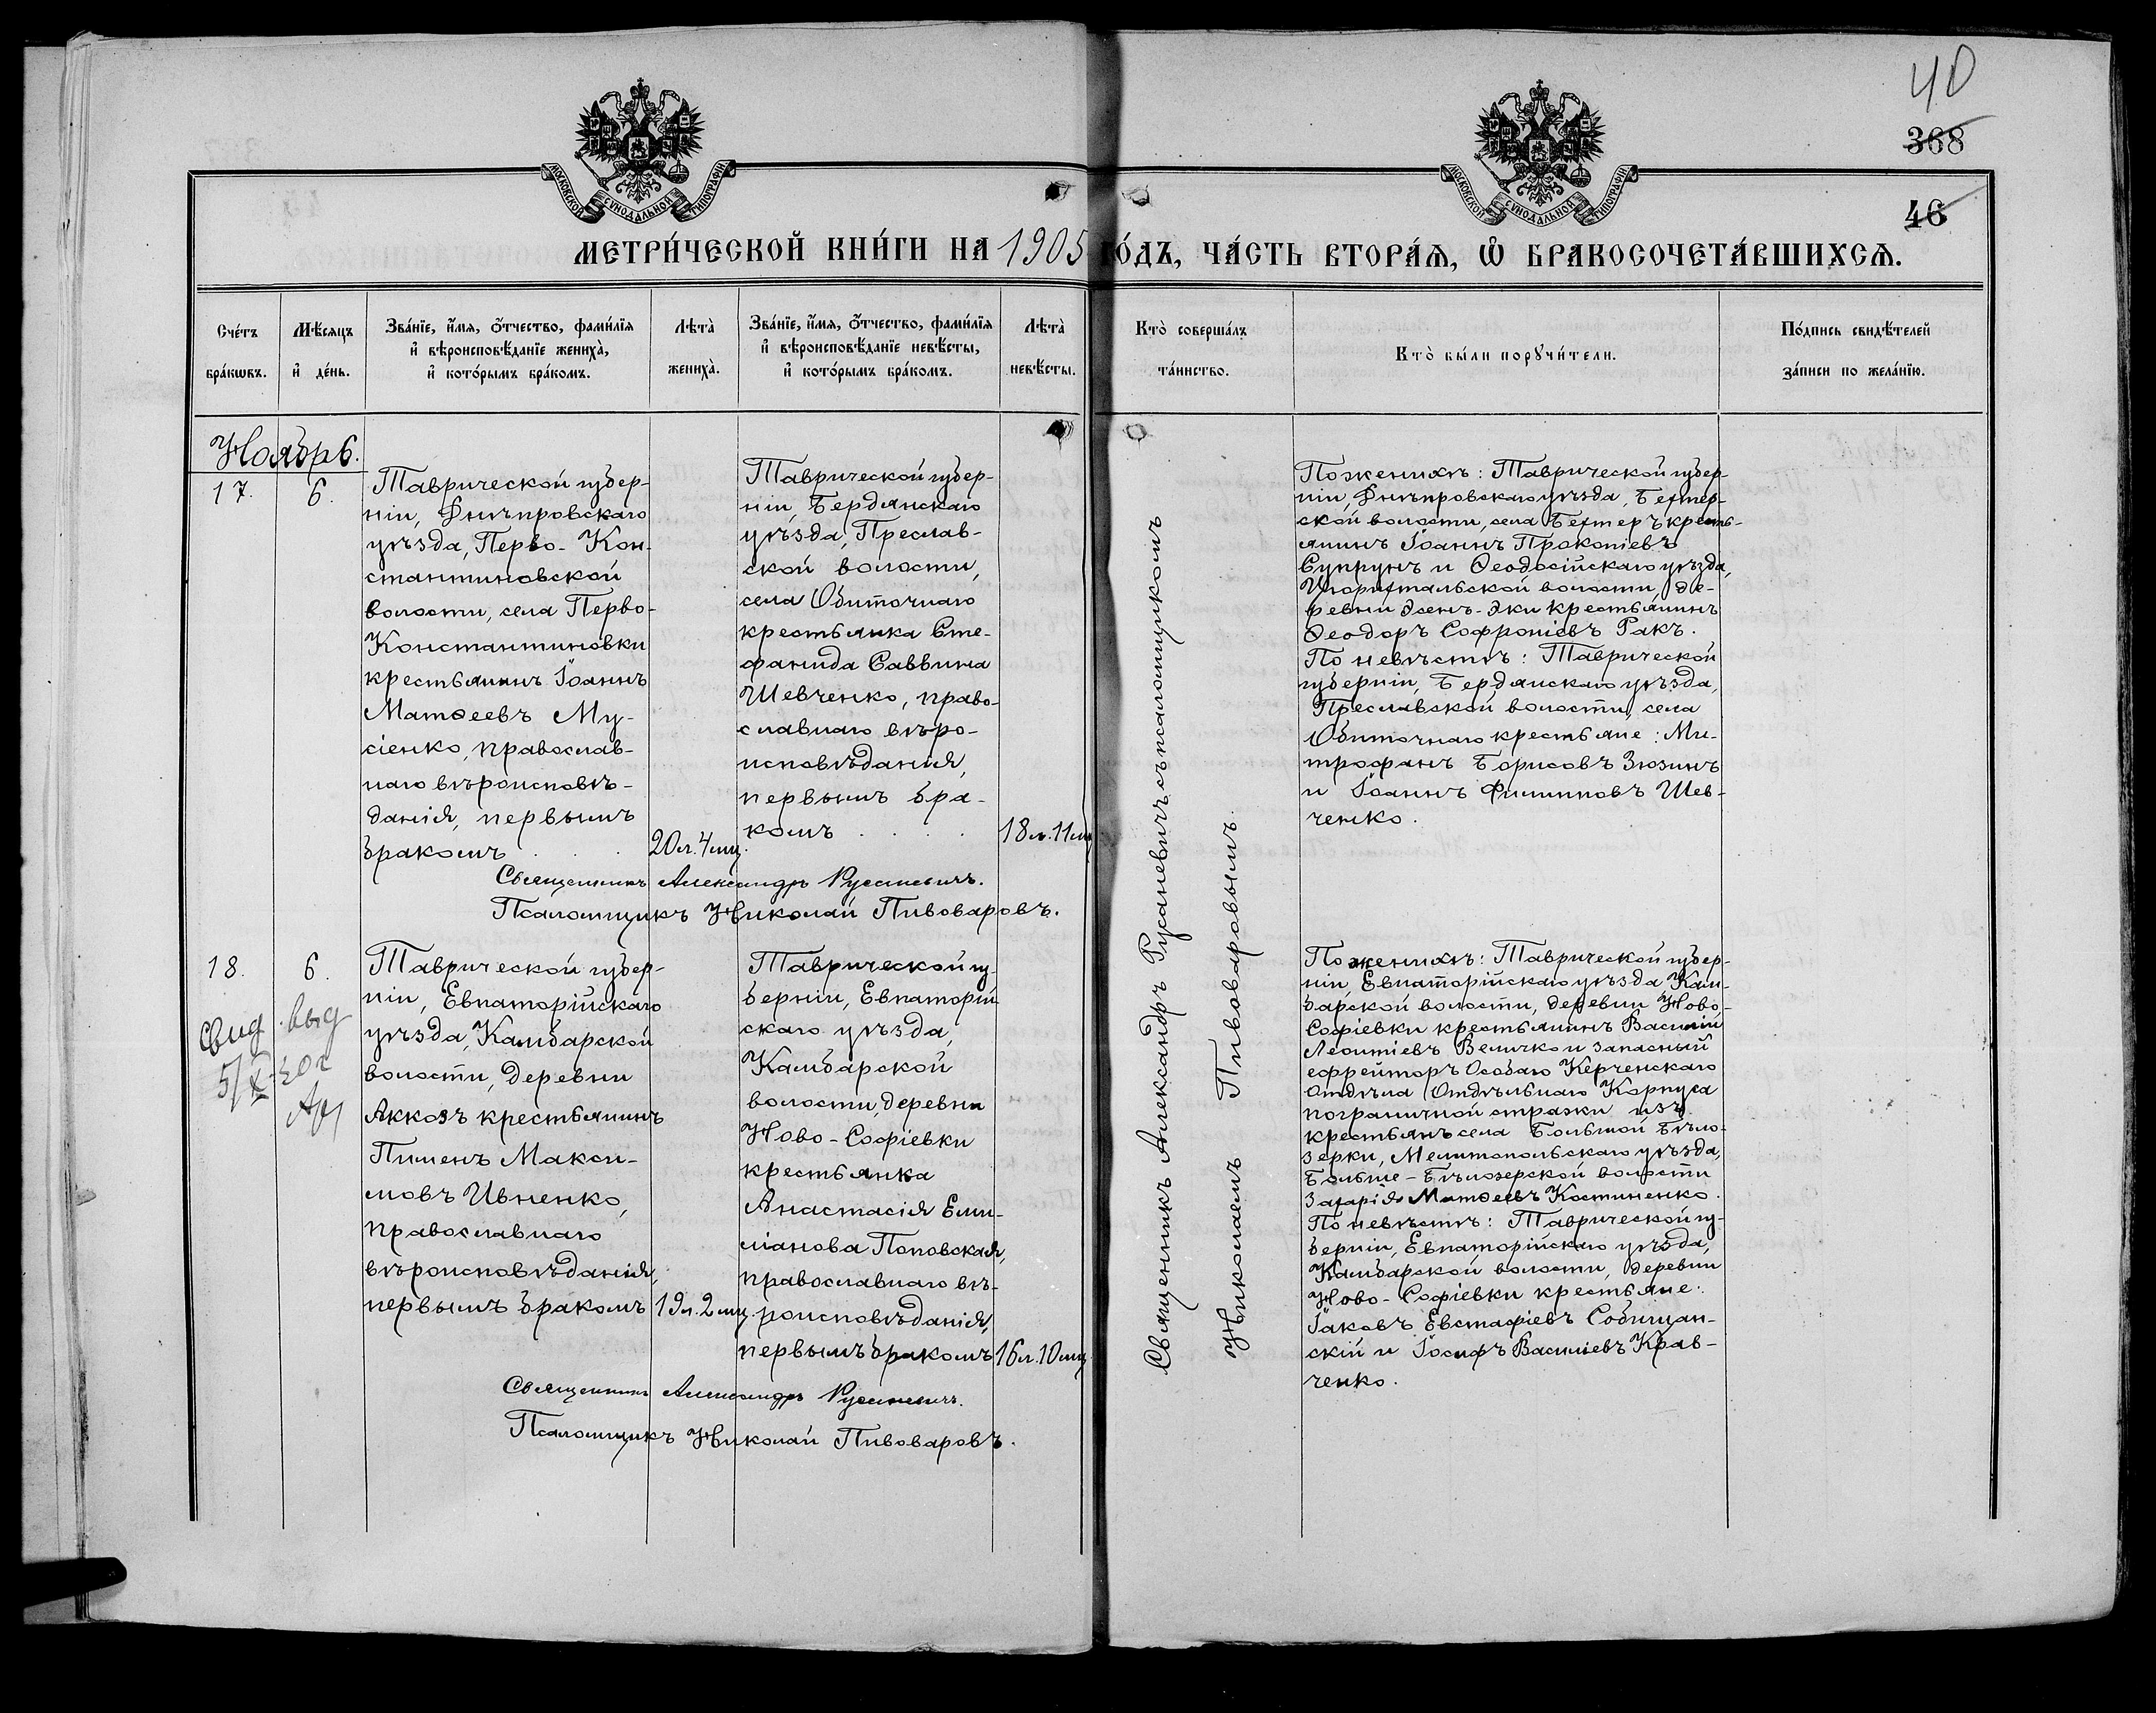 40
368
46
МОСКОВСКОЙ СѴНОДАЛЬНОЙ ТИПОГРАФІИ
МОСКОВСКОЙ СѴНОДАЛЬНОЙ ТИПОГРАФІИ
МЕТРИ́ЧЕСКОЙ КНИ́ГИ НА 1905 ГО́ДЪ, ЧА́СТЬ ВТОРА́Ѧ, Ѽ БРАКОСОЧЕТА́ВШИХСѦ.
Сче́тъ
бра́кѡвъ.
Мѣ́сяцъ
и҆ де́нь.
Зва́нїе, и҆́мя, о҆́тчество, фами́лїя
и҆ вѣроисповѣ́данїе жениха̀,
и҆ кото́рымъ бра́комъ.
Лѣта̀
жениха̀.
Зва́нїе, и҆́мя, о҆́тчество, фами́лїя
и҆ вѣроисповѣ́данїе невѣ́сты,
и҆ кото́рымъ бра́комъ.
Лѣта̀
невѣ́сты.
Кто̀ соверша́лъ
та́инство.
Кто̀ бы́ли порꙋчи́тели.
По́дпись свидѣ́телей
за́писи по жела́нїю.
Ноябрь.
17.
6.
Таврической губер-
ніи, Днѣпровскаго
уѣзда, Перво-Кон-
стантиновской
волости, села Перво-
Константиновки
крестьянинъ Іоаннъ
Матѳеевъ Му-
сіенко, православ-
наго вѣроисповѣ-
данія, первымъ
бракомъ . . .
20 л. 4 мц.
Таврической губер-
ніи, Бердянскаго
уѣзда, Преслав-
ской волости,
села Обиточнаго
крестьянка Сте-
фанида Саввина
Шевченко, право-
славнаго вѣро-
исповѣданія,
первымъ бра-
комъ . . . .
18 л. 11 мц
Священникъ Александръ Русаневичъ.
Псаломщикъ Николай Пивоваровъ.
Священникъ Александръ Русаневичъ съ псаломщикомъ
Николаемъ Пивоваровымъ.
По женихѣ: Таврической губер-
ніи, Днѣпровскаго уѣзда, Бехтер-
ской волости, села Бехтеръ кресть-
янинъ Іоаннъ Прокопіевъ
Супрунъ и Ѳеодосійскаго уѣзда,
волости, де-
ревни Джень-Эки крестьянинъ
Ѳеодоръ Софроніевъ Ракъ.
По невѣстѣ: Таврической
губерніи, Бердянскаго уѣзда,
Преславской волости, села
Обиточнаго крестьяне: Ми-
трофанъ Борисовъ Зюзинъ
и Іоаннъ Филипповъ Шев-
ченко.
18.
6.
Свид. выд
5/X-30 г
Таврической губер-
ніи, Евпаторійскаго
уѣзда, Камбарской
волости, деревни
Аккозъ крестьянинъ
Пименъ Макси-
мовъ Ивненко,
православнаго
вѣроисповѣданія,
первымъ бракомъ
19 л. 2 мц.
Таврической гу-
берніи, Евпаторій
скаго уѣзда,
Камбарской
волости, деревни
Ново-Софіевки
крестьянка
Анастасія Еми-
ліанова Поповская,
православнаго вѣ-
роисповѣданія,
первымъ бракомъ
16 л. 10 мц
Священникъ Александръ Русаневичъ.
Псаломщикъ Николай Пивоваровъ.
По женихѣ: Таврической губер-
ніи, Евпаторійскаго уѣзда Кам-
барской волости, деревни Ново-
Софіевки крестьянинъ Василій
Леонтіевъ Величко и запасный
ефрейторъ Особаго Керченскаго
Отдѣла Отдѣльнаго Корпуса
пограничной стражи изъ
крестьянъ села Большой Бѣло-
зерки, Мелитопольскаго уѣзда,
Больше-Бѣлозерской волости
Захарія Матѳеевъ Костиненко.
По невѣстѣ: Таврической гу-
берніи, Евпаторійскаго уѣзда,
Камбарской волости, деревни
Ново-Софіевки крестьяне:
Іаковъ Евстафіевъ Собищан-
скій и Іосифъ Василіевъ Крав-
ченко.